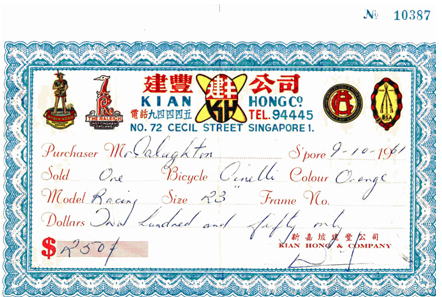 № 10387
建豐 公司
KIAN HONG Co.
電話九四四四五 TEL. 94445
NO. 72 CECIL STREET SINGAPORE 1.
THE RALEIGH
KH
Purchaser Mr S'pore 9-10-1961
Sold One Bicycle Cinelli Colour Orange
Model Racing Size 23" Frame No.
Dollars Two hundred and fifty only
新嘉坡建豐公司
$ 250/ KIAN HONG & COMPANY